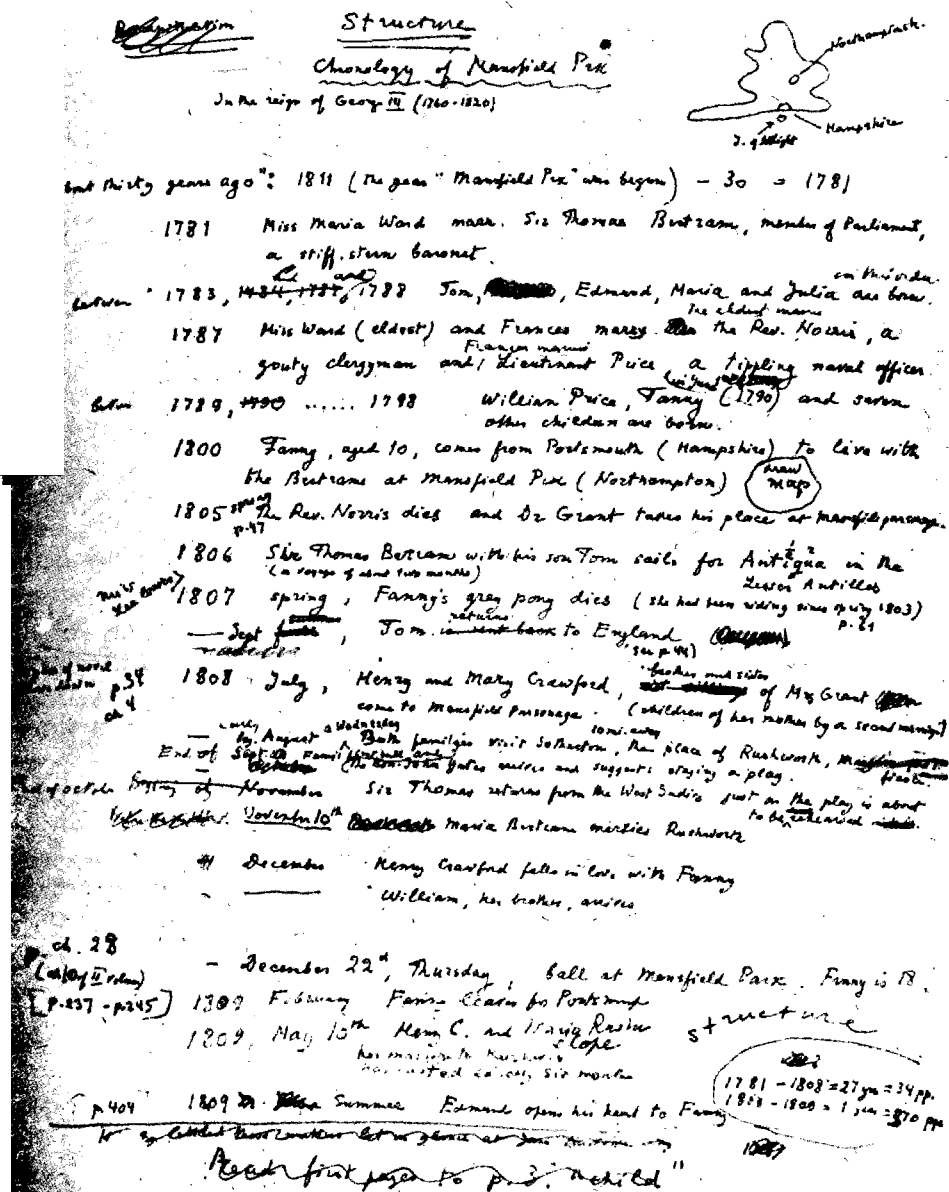 Structure
Chronology of Mansfield Park
In the reign of George III (1760-1820)
Northamptonsh.
Hampshire
I. of Wight
thirty years ago": 1811 (the year "Mansfield Park" was begun) - 30 = 1781
1781 Miss Maria Ward marr. Sir Thomas Bertram, member of Parliament,
a stiff, stern baronet.
and
between 1783, 1784, 1785, 1788 Tom, Edmund, Maria and Julia are born.
The eldest marries
1787 Miss Ward (eldest) and Frances marry the Rev. Norris, a
Frances marries
gouty clergyman and Lieutenant Price a tippling naval officer.
1789, 1790 ...... 1798 William Price, Fanny (1790) and seven
other children are born.
1800 Fanny, aged 10, comes from Portsmouth (Hampshire) to live with
the Bertrams at Mansfield Park (Northampton)
draw
map
1805 spring The Rev. Norris dies and Dr Grant takes his place at Mansfield parsonage.
p. 47
1806 Sir Thomas Bertram with his son Tom sails for Antigua in the
(a voyage of about two months) Lesser Antilles
1807 spring, Fanny's grey pony dies (she had been riding since spring 1803)
p. 61
returns
Sept, Tom went back to England
(see p 44)
p. 34
ch 4
brother and sister
1808 July, Henry and Mary Crawford, of Mrs Grant
come to Mansfield Parsonage. (children of her mother by a second marriage)
August a Wednesday
Both families visit Sotherton, the place of Rushworth,
End of Sept. Yates arrives and suggests staging a play.
November Sir Thomas returns from the West Indies just as the play is about
to be rehearsed
November 10th Maria Bertram marries Rushworth
December Henry Crawford falls in love with Fanny
William, her brother, arrives
ch. 28
(ch. 10 of II volume)
[p. 237 - p. 245]
- December 22d, Thursday, ball at Mansfield Park. Fanny is 18.
1809 February Fanny leaves for Portsmouth
1809, May 10th Henry C. and Maria Rushw
elope.
has lasted exactly six months
structure
1781 - 1808 = 27 years = 34 pp.
1808 - 1809 = 1 year =
p 404 1809 Summer Edmund opens his heart to Fanny
Read first pages to p. 3. "child"